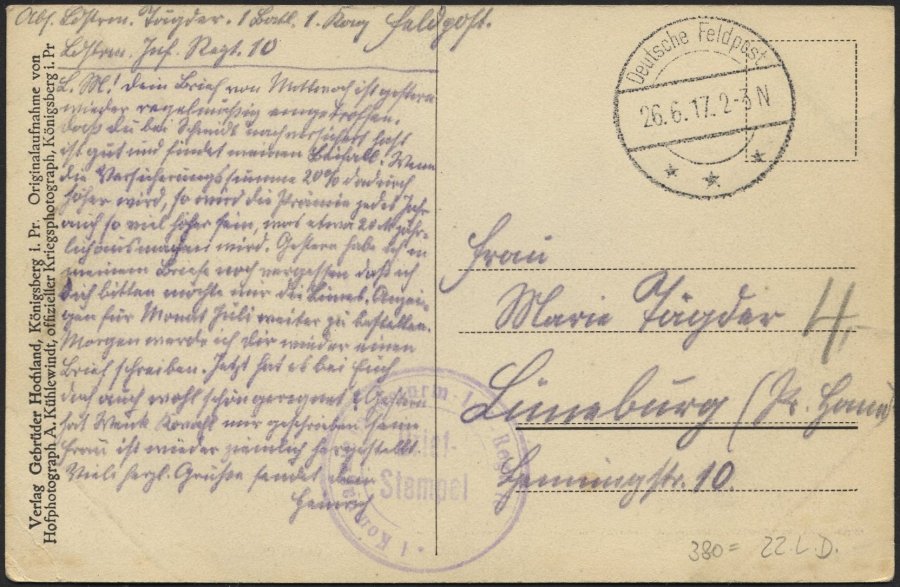 Abs. Ldstrm. Tägder. 1 Batl. 1. Komp Feldpost.
Ldstrm. Inf. Regt. 10
L. M! Dein Brief von Mittwoch ist gestern
wieder regelmäßig eingetroffen.
Daß du bei Schmidt nachversichert hast
ist gut und findet meinen Beifall. Wenn
die Versicherungssumme 20% dadurch
höher wird, so wird die Prämie jedes Jahr
auch so viel höher sein, was etwa 20 M jähr-
lich ausmachen wird. Gestern habe ich in
meinem Briefe noch vergessen daß ich
Dich bitten möchte mir die Lüneb. Anzei-
gen für Monat Juli weiter zu bestellen.
Morgen werde ich Dir wieder einen
Brief schreiben. Jetzt hat es bei Euch
doch auch wohl schön geregnet? Gestern
hat mir geschrieben seine
Frau ist wieder ziemlich hergestellt.
Viele herzl. Grüße sendet Dein
Heinrich
Verlag Gebrüder Hochland, Königsberg i. Pr. Originalaufnahme von
Hofphotograph A. Kühlewindt, offizieller Kriegsphotograph, Königsberg i. Pr
Deutsche Feldpost
26.6.17. 2-3 N
Frau
Marie Tägder
Lüneburg (Pr. Hann)
Henningstr. 10.
4
Stempel
380= 22 L D.